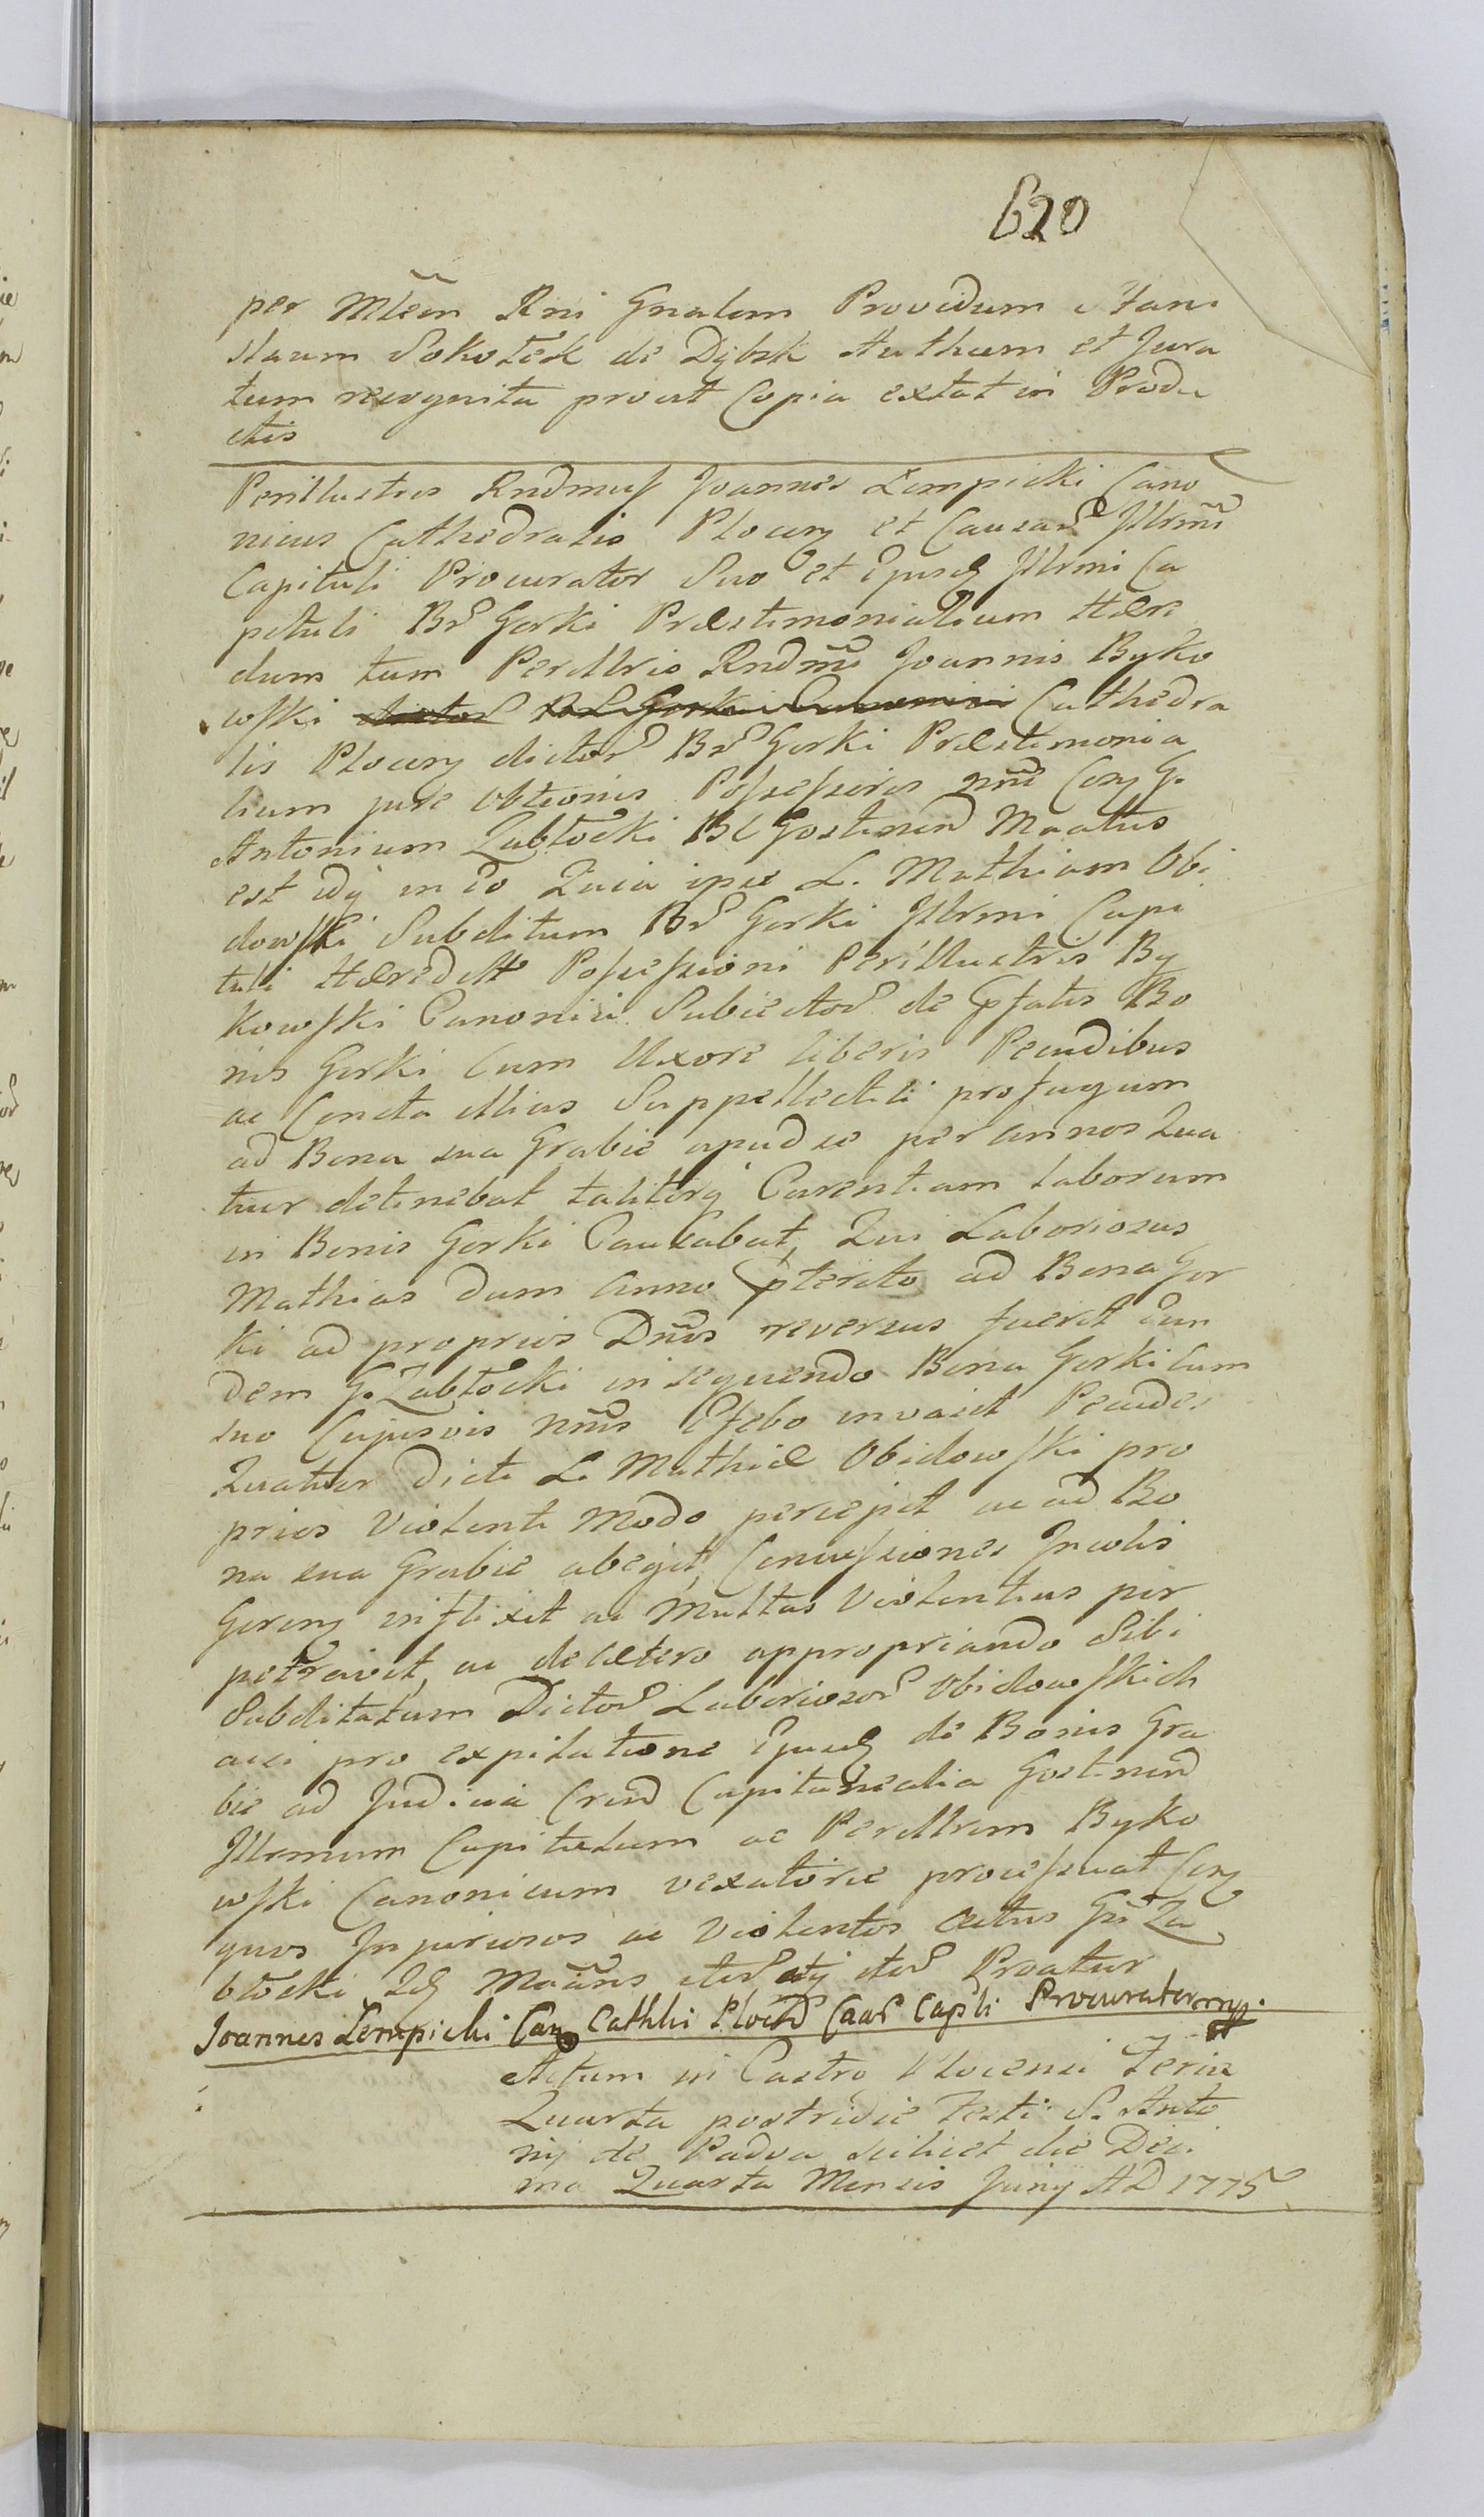 620
per Mlem Rni Gnalem Providum Stani
slaum Sokołek de Dębsk Authum et Jura
tum recognita prout Copia extat in Produ
ctis
Perillustris Rndmus Joannes Lempicki Cano
nicus Cathedralis Plocen et Causar Illrmi
Capituli Procurator Suo et Ejusd Illrmi Ca
pituli Br Gorki Præstimonialium Hære
dum tum Perillris Rndmi Joannis Byko
wski Cathedra
lis Plocen dictor Br Gorki Præstimonia
lium jure obtionis Possessoris nni Con G.
Antonium Zabłocki Bl Gostinen Maaltus
est idq in eo Quia ipse L. Mathiam Obi
dowski Subditum Br Gorki Illrmi Capi
tuli Hæredit Possessioni Perillustris By
kowski Canonici Subiector de pfatis Bo
nis Gorki cum Uxore liberis Pecudibus
ac Cuncta illius Suppellectili profugum
ad Bona sua Grabie apud se per annos Qua
tuor detinebat taliterq Carentiam laborum
in Bonis Gorki Causabat, Qui Laboriosus
Mathias dum Anno pterito ad Bona Gor
ki ad proprios Dnos reversus fuerit Eun
dem G. Zabłocki insequendo Bona Gorki cum
suo Cujusvis nnis Efebo invasit Pecudes
Quatuor dicti L. Mathiæ Obidowski pro
prios Violenti Modo percepit ac ad Bo
na sua Grabie abegit Concussiones Incolis
Goren inflixit ac Multas Violentias per
petravit, ac de cætero appropriando Sibi
Subditatum Dictor Laboriosor Obidowskich
acsi pro expilatione Ejusd de Bonis Gra
bie ad Judicia Crend Capitanealia Gostinen
Illrmum Capitulum ac Perillrem Byko
wski Canonicum vexatorie processuat Con
quos Injuriosos ac Violentos actus Gsi Za
błocki Idq Maans iter atq iter Proatur
Joannes Lempicki Can Cathlis Plocen Caar Caplis Procurator mp.
Actum in Castro Plocensi Feria
Quarta postridie Festi S. Anto
nij de Padva scilicet die Deci
ma Quarta Mensis Junij AD 1775